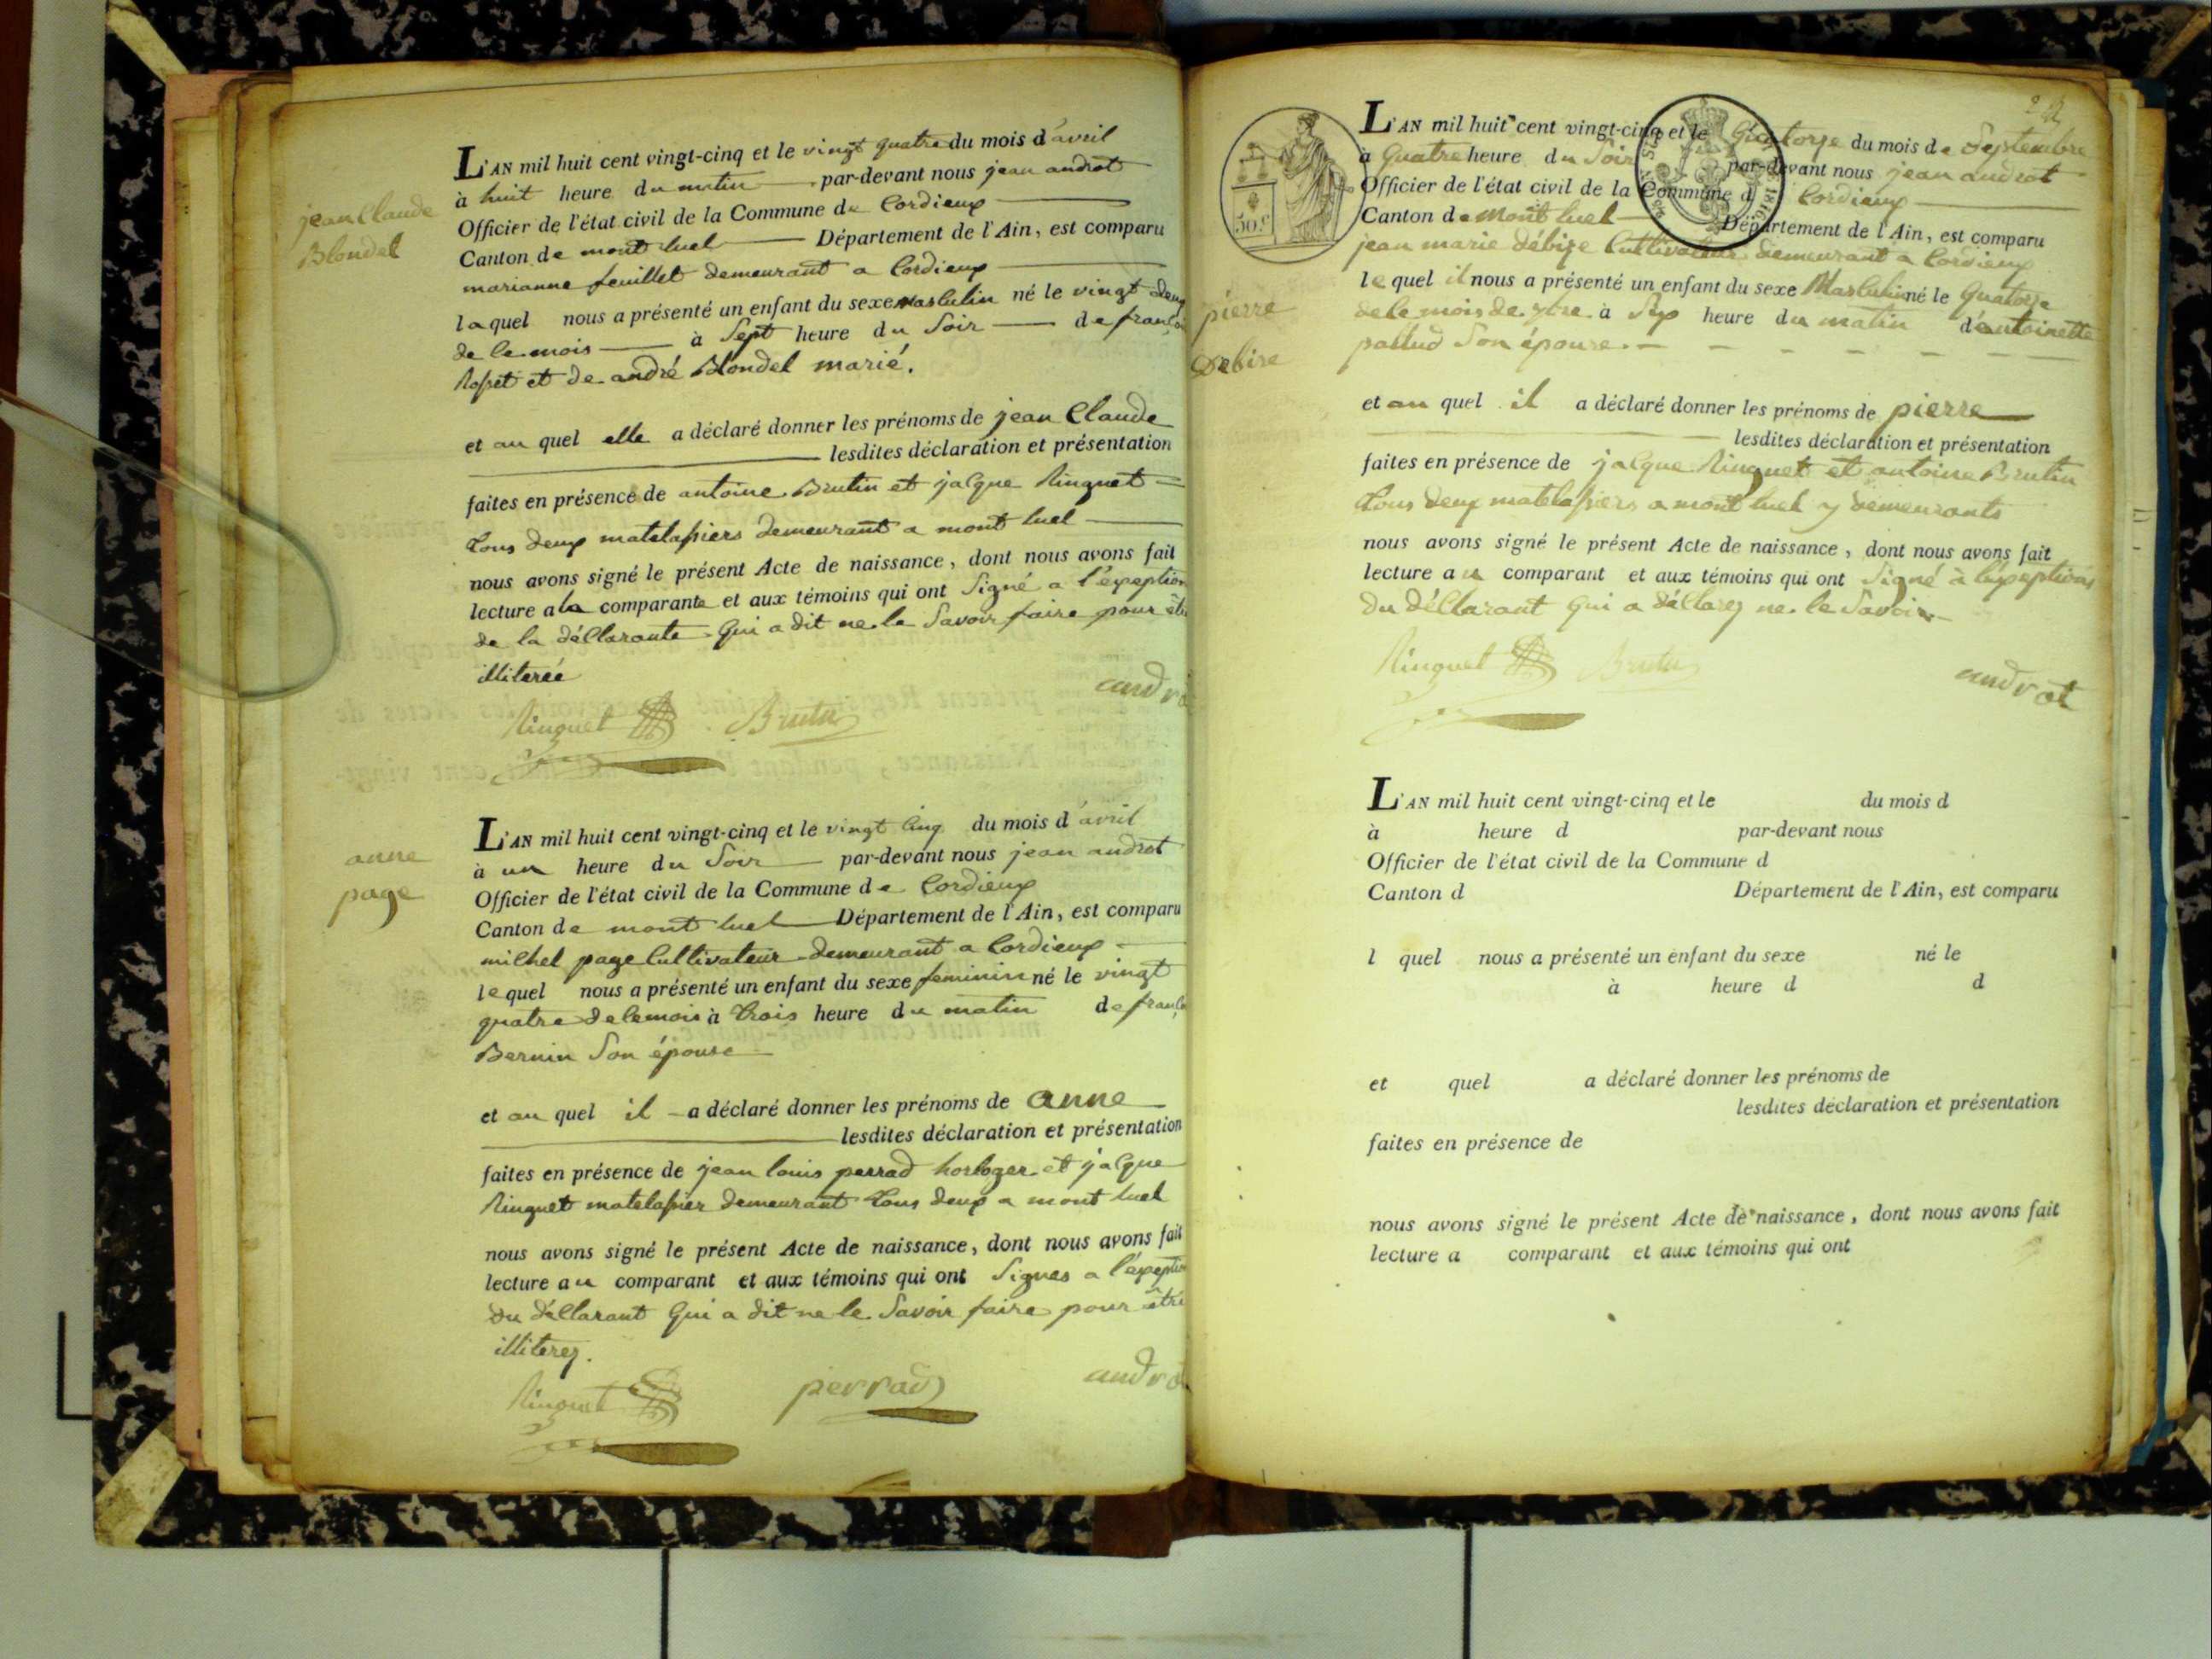 jean Claude
Blondel
L'AN mil huit cent vingt-cinq et le vingt quatre du mois d'avril
à huit heure du matin par-devant nous jean androt
Officier de l'état civil de la Commune de Cordieux
Canton de mont luel Département de l'Ain, est comparu
marianne feuillet demeurant a Cordieux
laquel nous a présenté un enfant du sexe masculin né le vingt deux
de ce mois à Sept heure du Soir de franço
Rosset et de andré Blondel marié.
et au quel elle a déclaré donner les prénoms de jean Claude
lesdites déclaration et présentation
faites en présence de antoine Brutin et jacque Ringuet
tous deux matelassiers demeurant a mont luel
nous avons signé le présent Acte de naissance, dont nous avons fait
lecture a la comparante et aux témoins qui ont Signé a l'exeption
de la déClarante Qui a dit ne le Savoir faire pour être
illiterée
androt
Ringuet Brutin
anne
page
L'AN mil huit cent vingt-cinq et le vingt Cinq du mois d'avril
à un heure du Soir par-devant nous jean androt
Officier de l'état civil de la Commune de Cordieux
Canton de mont luel Département de l'Ain, est comparu
michel page Cultivateur demeurant a Cordieux
lequel nous a présenté un enfant du sexe feminin né le vingt
quatre de ce mois à trois heure du matin de franço
Bernin Son épouse
et au quel il a déclaré donner les prénoms de anne
lesdites déclaration et présentation
faites en présence de jean louis perrad horloger et jacque
Ringuet matelassier demeurant tous deux a mont luel
nous avons signé le présent Acte de naissance, dont nous avons fait
lecture au comparant et aux témoins qui ont Signes a l'exeption
du déClarant Qui a dit ne le Savoir faire pour être
illiterez.
Ringuet perrad androt
50 c
L'AN mil huit cent vingt-cinq et le Quatorze du mois de Septembre
à Quatre heure du Soir par-devant nous jean androt
Officier de l'état civil de la Commune d Cordieux
Canton de Mont luel Département de l'Ain, est comparu
jean marie débize Cultivateur demeurant a Cordieux
lequel il nous a présenté un enfant du sexe Masculin né le Quatorze
de ce mois de 7bre à Six heure du matin d'antoinette
pallud Son épouse.
pierre
Debize
et au quel il a déclaré donner les prénoms de pierre
lesdites déclaration et présentation
faites en présence de jacque Ringuet et antoine Brutin
tous deux matelassiers a mont luel y demeurants
nous avons signé le présent Acte de naissance, dont nous avons fait
lecture au comparant et aux témoins qui ont Signé à l'exeption
du déClarant Qui a déClarez ne le Savoir
Ringuet Brutin androt
L'AN mil huit cent vingt-cinq et le du mois d
à heure d par-devant nous
Officier de l'état civil de la Commune d
Canton d Département de l'Ain, est comparu
l quel nous a présenté un enfant du sexe né le
à heure d d
et quel a déclaré donner les prénoms de
lesdites déclaration et présentation
faites en présence de
nous avons signé le présent Acte de naissance, dont nous avons fait
lecture a comparant et aux témoins qui ont